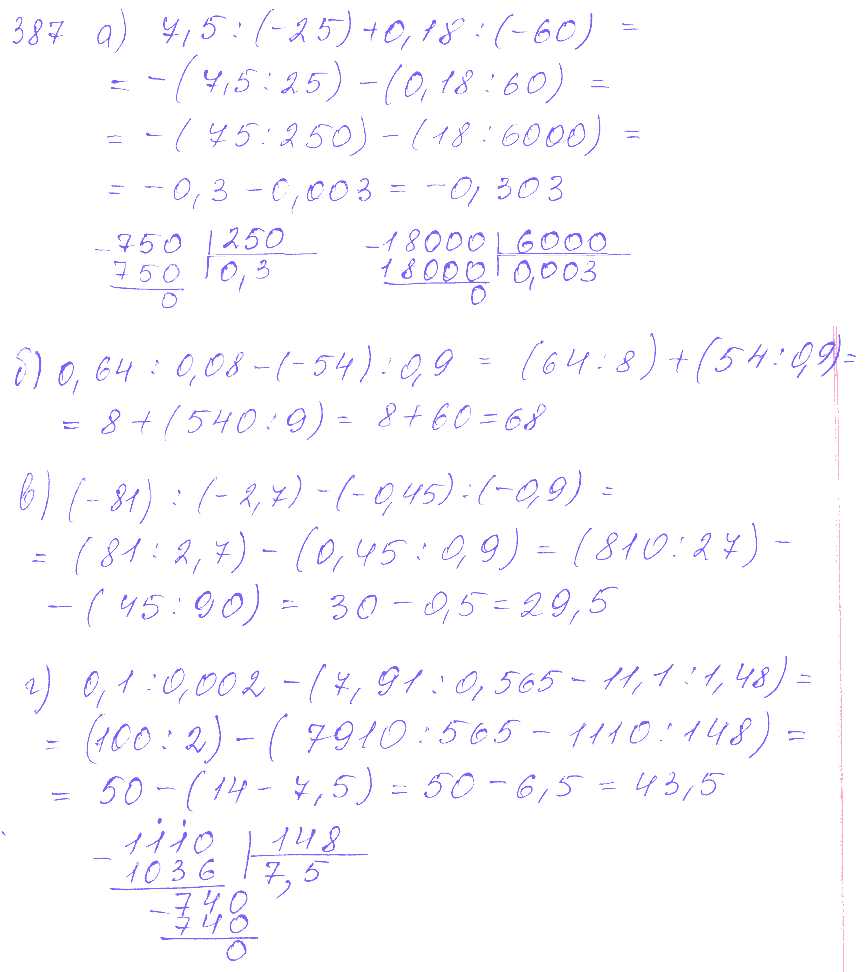 387 а) 7,5 : (-25) + 0,18 : (-60) =
= -(7,5 : 25) - (0,18 : 60) =
= -(75 : 250) - (18 : 6000) =
= -0,3 - 0,003 = -0,303
-750 | 250 -18000 | 6000
750 | 0,3 18000 | 0,003
0 0
б) 0,64 : 0,08 - (-54) : 0,9 = (64 : 8) + (54 : 0,9) =
= 8 + (540 : 9) = 8 + 60 = 68
в) (-81) : (-2,7) - (-0,45) : (-0,9) =
= (81 : 2,7) - (0,45 : 0,9) = (810 : 27) -
- (45 : 90) = 30 - 0,5 = 29,5
г) 0,1 : 0,002 - (7,91 : 0,565 - 11,1 : 1,48) =
= (100 : 2) - (7910 : 565 - 1110 : 148) =
= 50 - (14 - 7,5) = 50 - 6,5 = 43,5
-1110 | 148
1036 | 7,5
-740
740
0